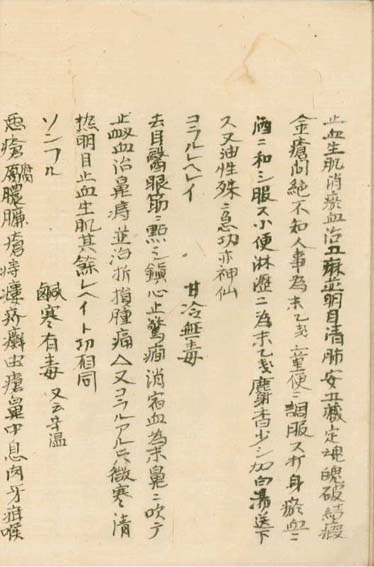 止血生肌消瘀血治五麻正明目清肺安五臓定魂魄破結瘕
金瘡悶絶不知人事為末乙戔童便ニ調服ス打身瘀血ニ
酒ニ和シ服ス小便淋瀝ニ為末乙戔麝香少シ加白湯送下
ス又油性殊ニ急功亦神仙
コラルレヘレイ 甘冷無毒
去目翳眼筋ニ點シ鎮心止驚癇消宿血為末鼻ニ吹テ
止衂血治鼻痔並治折損腫痛△又コラルアル尺微寒清
热明目止血生肌其餘レヘイト功相同
ソンフル 鹹寒有毒 又云辛温
悪瘡腐膿臁瘡痔瘻疥癬虫瘡鼻中息肉牙疳喉